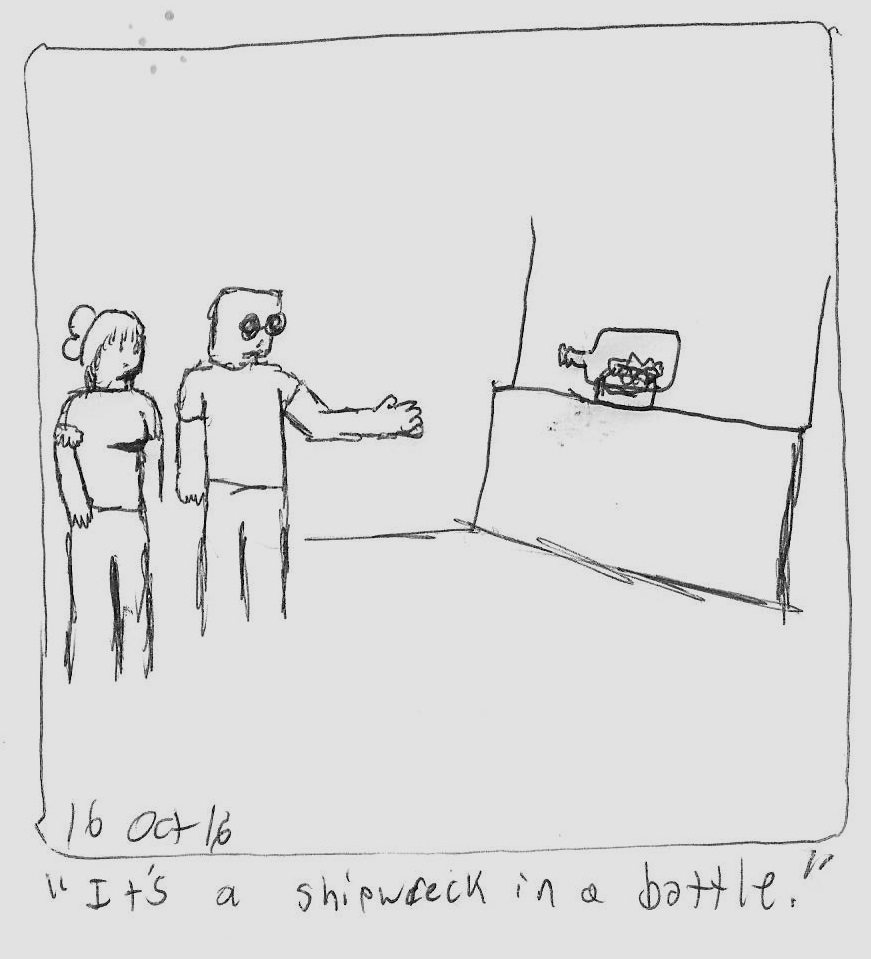 16 Oct 16
"It's a shipwreck in a bottle."